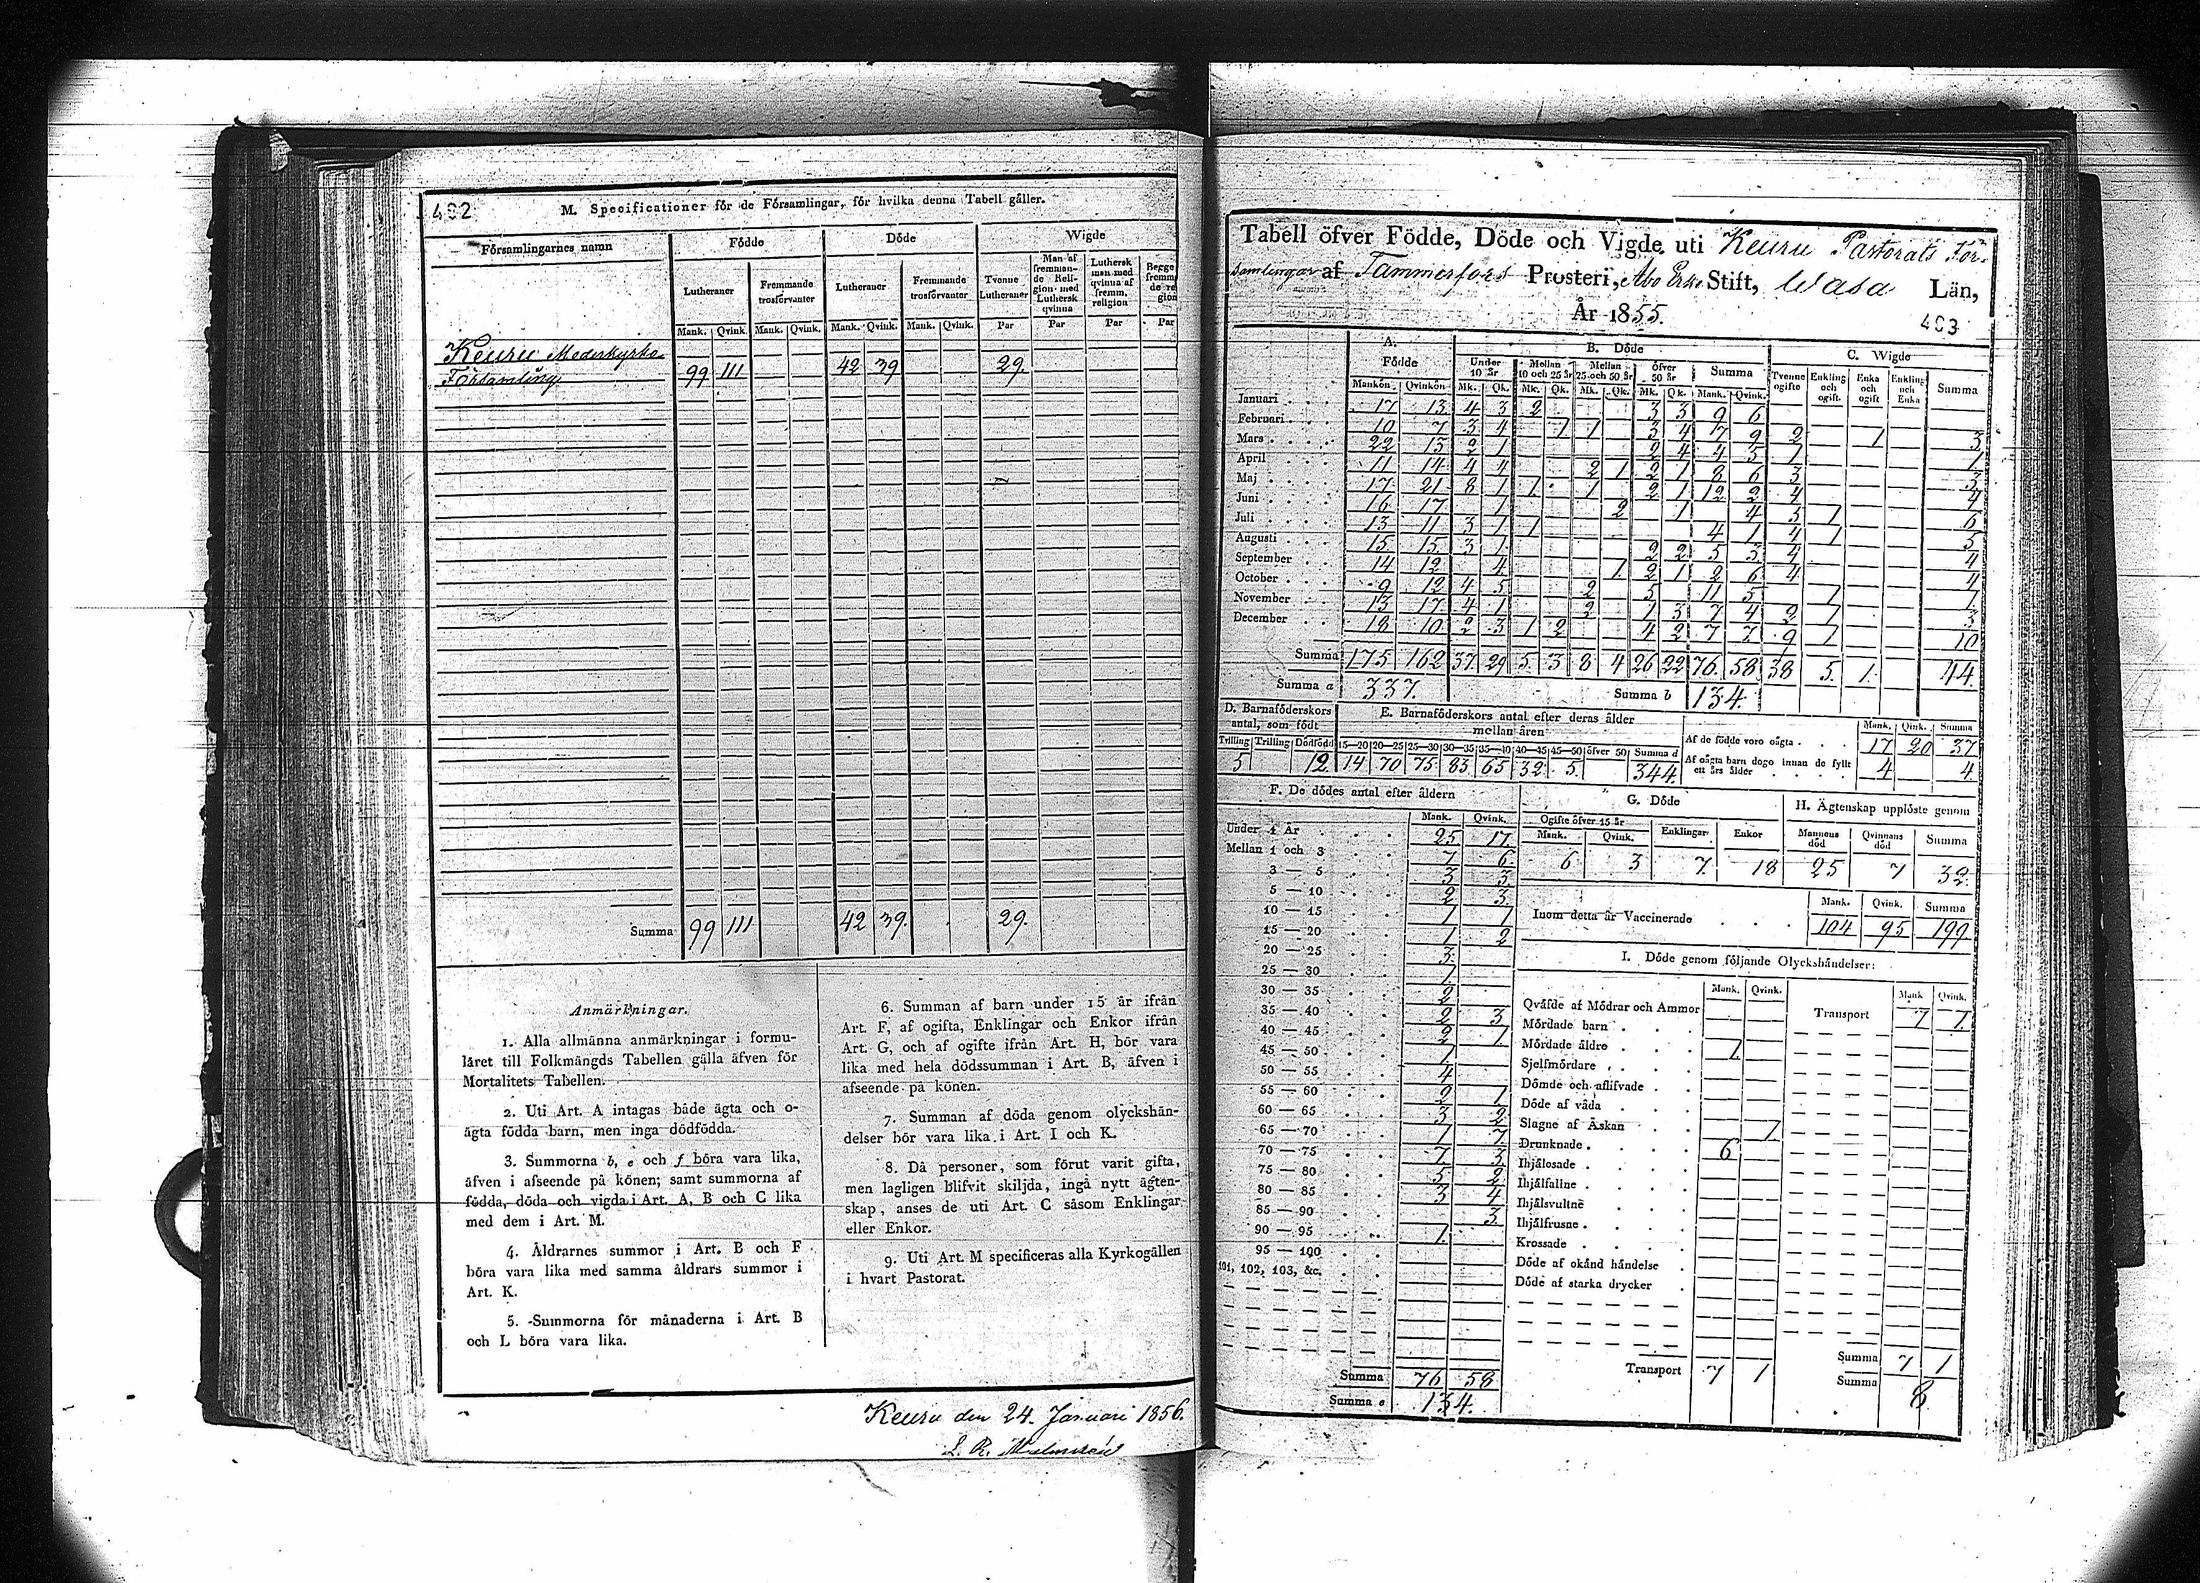 402
M. Specificationer för de Församlingar, för hvilka denna Tabell gäller.
Församlingarnes namn | Födde | Döde | Wigde
Lutheraner | Fremmande trosförvanter | Lutheraner | Fremmande trosförvanter | Tvenne Lutheraner | Man af fremmande Religion med Luthersk qvinna | Luthersk man med qvinna af fremm. religion | Begge fremmande re gion
Mank. | Qvink. | Mank. | Qvink. | Mank. | Qvink. | Mank. | Qvink. | Par | Par | Par | Par
Keuru Moderkyrko
Församling | 99 | 111 | 42 | 39 | 29.
Summa | 99 | 111 | 42 | 39. | 29.
Anmärkningar.
1. Alla allmänna anmärkningar i formu-
läret till Folkmängds Tabellen gälla äfven för
Mortalitets Tabellen.
2. Uti Art. A intagas både ägta och o-
ägta födda barn, men inga dödfödda.
3. Summorna b, e och f böra vara lika,
äfven i afseende på könen; samt summorna af
födda, döda och vigda i Art. A, B och C lika
med dem i Art. M.
4. Åldrarnes summor i Art. B och F
böra vara lika med samma åldrars summor i
Art. K.
5. Summorna för månaderna i Art. B
och L böra vara lika.
6. Summan af barn under 15 år ifrån
Art. F, af ogifta, Enklingar och Enkor ifrån
Art. G, och af ogifte ifrån Art. H, bör vara
lika med hela dödssumman i Art. B, äfven i
afseende på könen.
7. Summan af döda genom olyckshän-
delser bör vara lika i Art. I och K.
8. Då personer, som förut varit gifta,
men lagligen blifvit skiljda, ingå nytt ägten-
skap, anses de uti Art. C såsom Enklingar
eller Enkor.
9. Uti Art. M specificeras alla Kyrkogällen
i hvart Pastorat.
Keuru den 24. Januari 1856.
Tabell öfver Födde, Döde och Vigde uti Keuru Pastorats För-
samlingar af Tammerfors Prosteri, Åbo Erke Stift, Wasa Län,
År 1855.
403
A. Födde | B. Döde | C. Wigde
Under 10 år | Mellan 10 och 25 år | Mellan 25 och 50 år | öfver 50 år | Summa | Tvenne ogifte | Enkling och ogift. | Enka och ogift | Enkling och Enka | Summa
Mankön | Qvinkön | Mk. | Qk. | Mk. | Qk. | Mk. | Qk. | Mk. | Qk. | Mank. | Qvink.
Januari | 17 | 13 | 4 | 3 | 2 | 3 | 3 | 9 | 6
Februari | 10 | 7 | 3 | 4 | 1 | 1 | 3 | 4 | 7 | 9 | 2 | 1 | 3
Mars | 22 | 13 | 2 | 1 | 2 | 4 | 4 | 5 | 1 | 1
April | 11 | 14 | 4 | 4 | 2 | 1 | 2 | 1 | 8 | 6 | 3 | 3
Maj | 17 | 21 | 8 | 1 | 1 | 1 | 2 | 1 | 12 | 2 | 4 | 4
Juni | 16 | 17 | 1 | 2 | 1 | 4 | 5 | 1 | 6
Juli | 13 | 11 | 3 | 1 | 1 | 4 | 1 | 4 | 1 | 5
Augusti | 15 | 15 | 3 | 1 | 2 | 2 | 5 | 3 | 4 | 4
September | 14 | 12 | 4 | 1 | 2 | 1 | 2 | 6 | 4 | 4
October | 9 | 12 | 4 | 5 | 2 | 5 | 11 | 5 | 1 | 1
November | 13 | 17 | 4 | 1 | 2 | 1 | 3 | 7 | 4 | 2 | 1 | 3
December | 18 | 10 | 2 | 3 | 1 | 2 | 4 | 2 | 7 | 7 | 9 | 1 | 10
Summa | 175 | 162 | 37 | 29 | 5 | 3 | 8 | 4 | 26 | 22 | 76 | 58 | 38 | 5 | 1 | 44
Summa a | 337. | Summa b | 134.
D. Barnaföderskors antal, som födt | E. Barnaföderskors antal efter deras ålder mellan åren
Trilling | Trilling | Dödfödd | 15—20 | 20—25 | 25—30 | 30—35 | 35—40 | 40—45 | 45—50 | öfver 50 | Summa d
5 | 12 | 14 | 70 | 75 | 83 | 65 | 32 | 5 | 344.
Mank. | Qink. | Summa
Af de födde voro oägta | 17 | 20 | 37
Af oägta barn dogo innan de fyllt ett års ålder | 4 | 4
F. De dödes antal efter åldern
Mank. | Qvink.
Under 1 År | 25 | 17
Mellan 1 och 3 | 7 | 6
3 — 5 | 3 | 3
5 — 10 | 2 | 3
10 — 15 | 1 | 1
15 — 20 | 1 | 2
20 — 25 | 3
25 — 30 | 1
30 — 35 | 2
35 — 40 | 2 | 3
40 — 45 | 2 | 1
45 — 50 | 1
50 — 55 | 4
55 — 60 | 2 | 1
60 — 65 | 3 | 2
65 — 70 | 1 | 7
70 — 75 | 7 | 3
75 — 80 | 5 | 2
80 — 85 | 3 | 4
85 — 90 | 3
90 — 95 | 1
95 — 100
101, 102, 103, &c.
Summa | 76 | 58
Summa e | 134.
G. Döde
Ogifte öfver 15 år | Enklingar | Enkor
Mank. | Qvink.
6 | 3 | 7 | 18
H. Ägtenskap upplöste genom
Mannens död | Qvinnans död | Summa
25 | 7 | 32
Mank. | Qvink. | Summa
Inom detta år Vaccinerade | 104 | 95 | 199
I. Döde genom följande Olyckshändelser:
Mank. | Qvink. | Mank | Qvink.
Qväfde af Mödrar och Ammor | Transport | 7 | 1
Mördade barn
Mördade äldre | 1
Sjelfmördare
Dömde och aflifvade
Döde af våda
Slagne af Åskan | 1
Drunknade | 6
Ihjälosade
Ihjälfallne
Ihjälsvultne
Ihjälfrusne
Krossade
Döde af okänd händelse
Döde af starka drycker
Transport | 7 | 1 | Summa | 7 | 1
Summa | 8